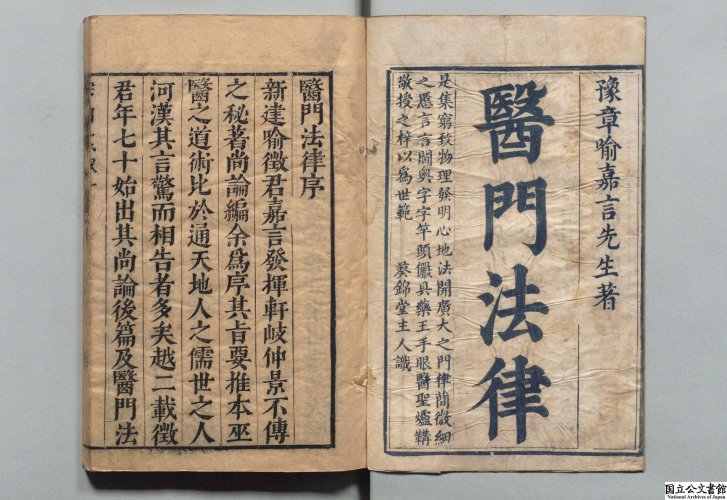 豫章喻嘉言先生著
醫門法律
是集窮致物理發明心地法開廣大之門律簡微細
之愿言言闢奧字字竿頭儼具藥王手眼醫聖爐鞲
敬授之梓以為世範 葵錦堂主人識
醫門法律序
新建喻徵君嘉言發揮軒岐仲景不傳
之秘著尚論編余為序其旨要推本巫
醫之道術比於通天地人之儒世之人
河漢其言驚而相告者多矣越二載徵
君年七十始出其尚論後篇及醫門法
国立公文書館
National Archives of Japan